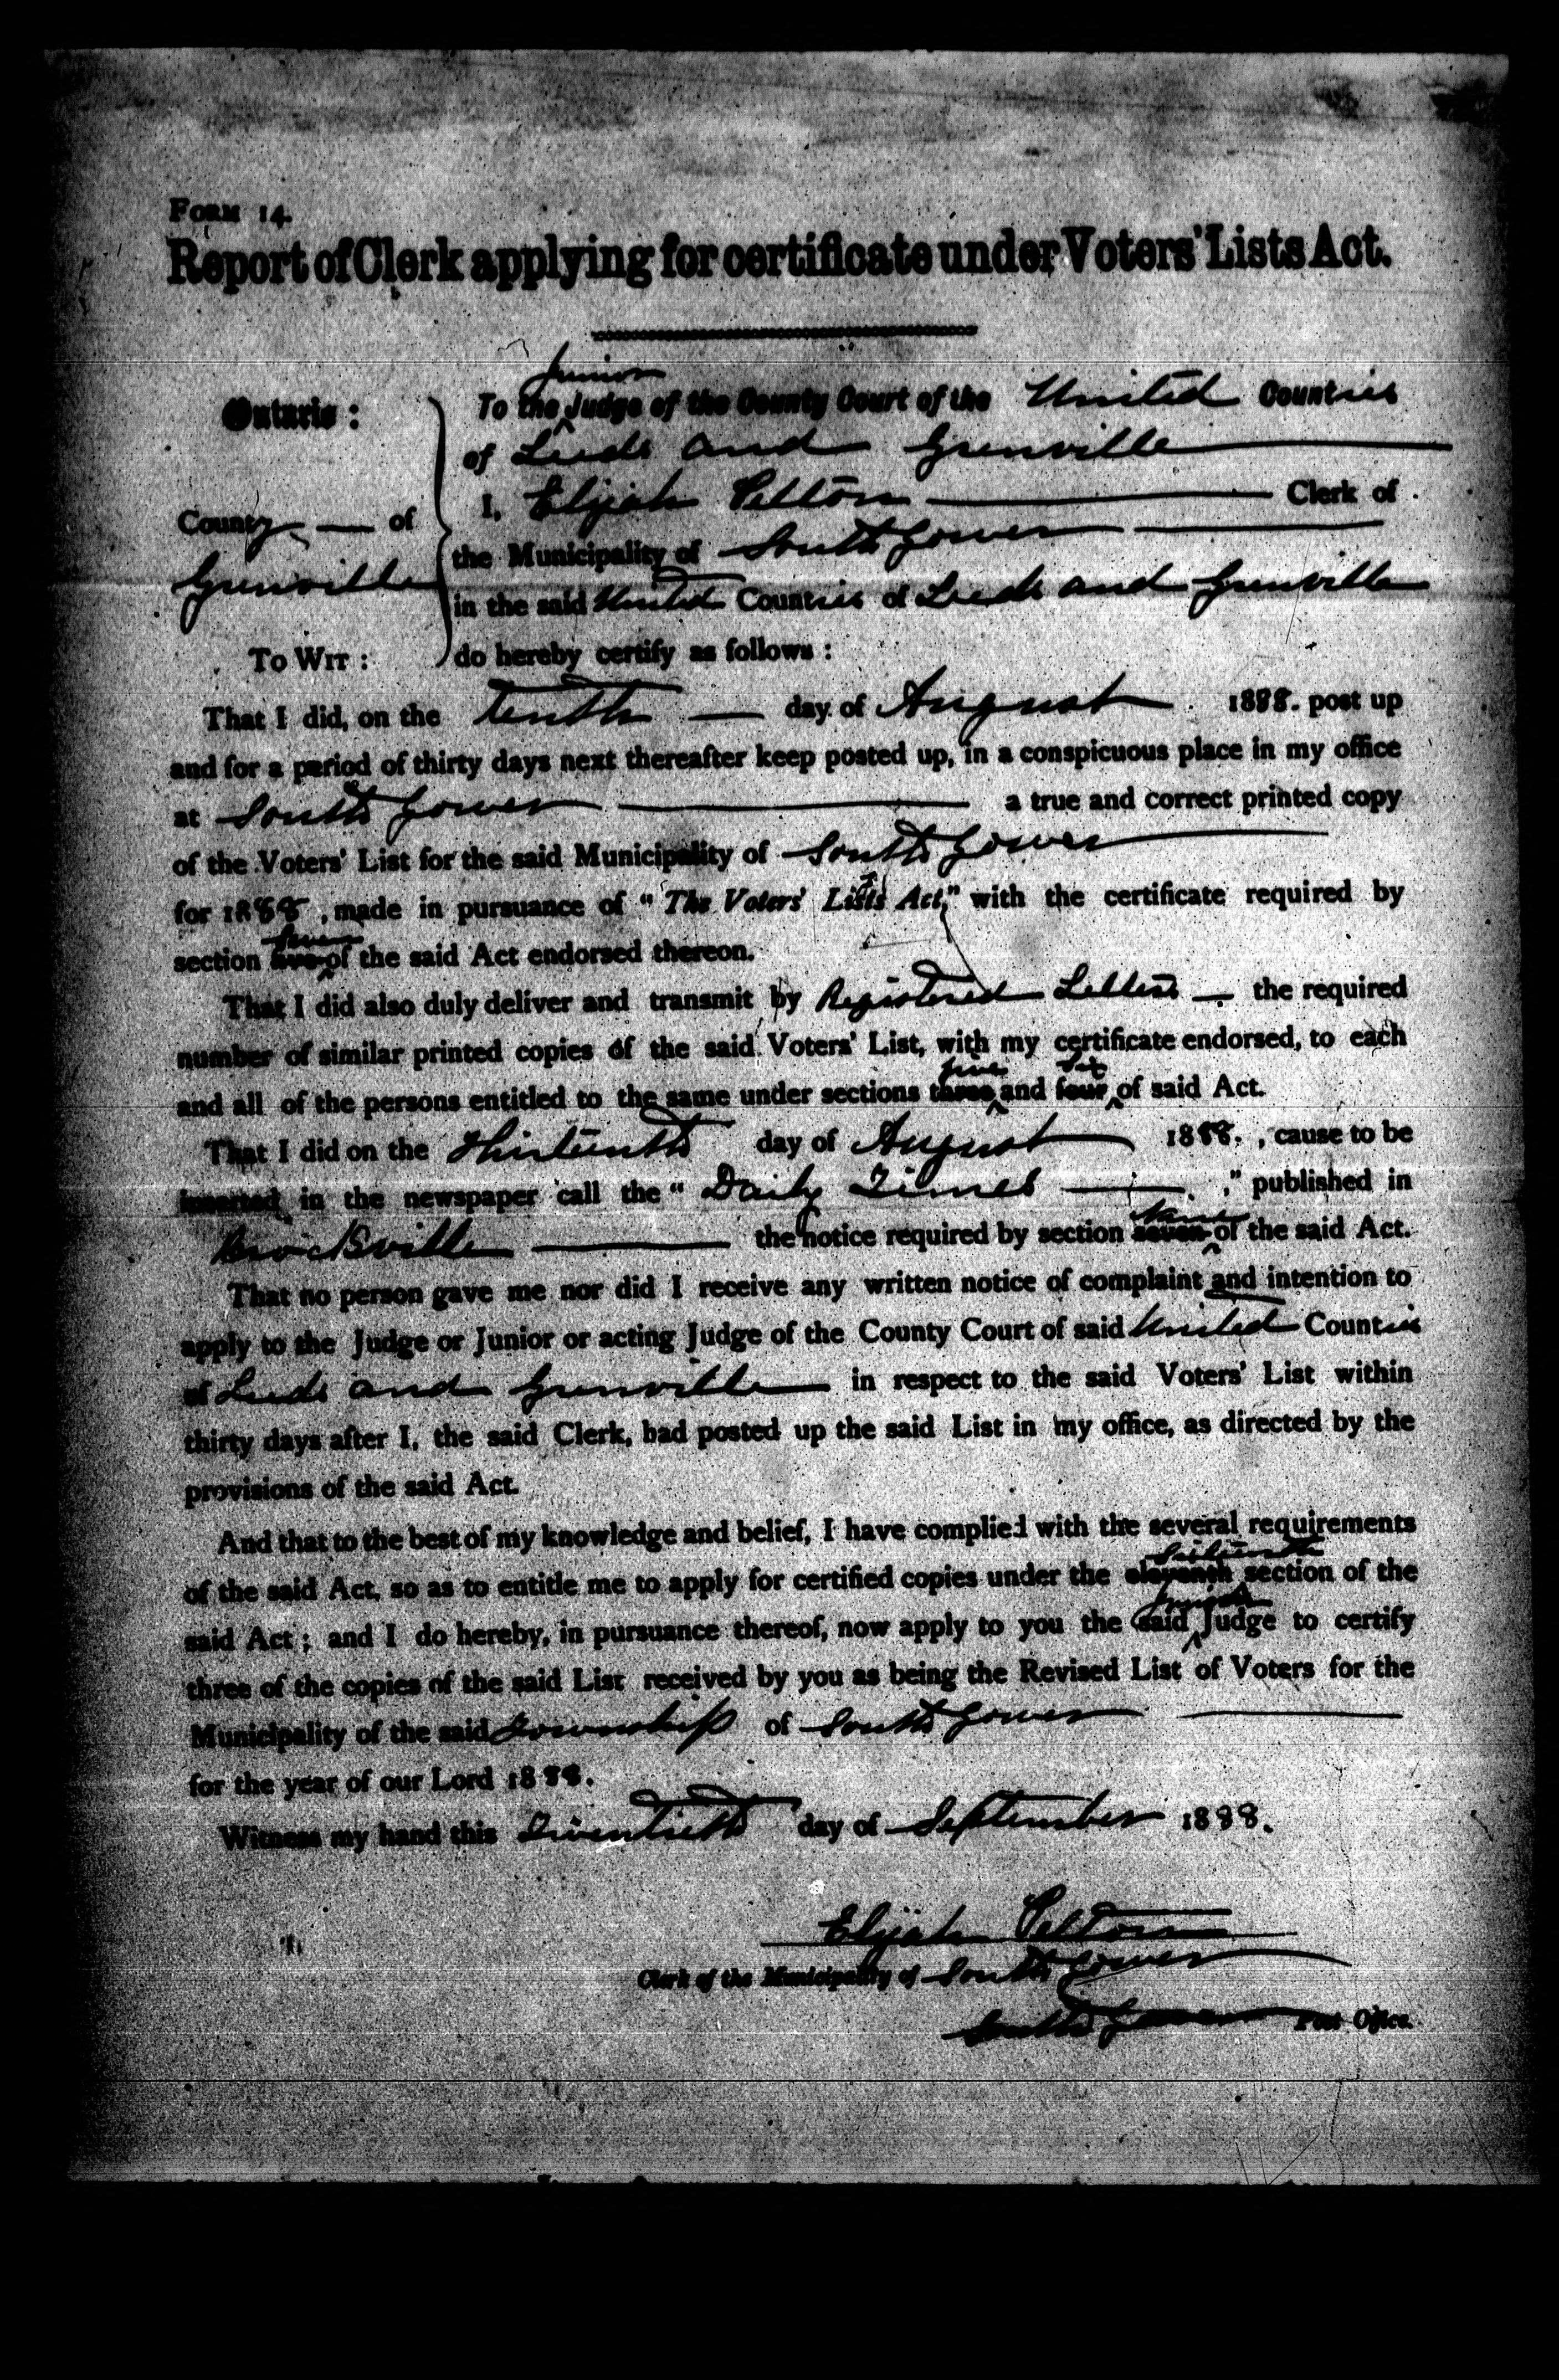 FORM 14.
Report of Clerk applying for certificate under Voters' Lists Act.
Junior
Ontario : To the Judge of the County Court of the United Counties
of Leeds and Grenville
I, Elijah Pelton Clerk of
County of
the Municipality of South Gower
Grenville
in the said United Counties of Leeds and Grenville
TO WIT : do hereby certify as follows :
That I did, on the tenth day of August 1888. post up
and for a period of thirty days next thereafter keep posted up, in a conspicuous place in my office
at South Gower a true and correct printed copy
of the Voters' List for the said Municipality of South Gower
for 1888, made in pursuance of "The Voters' Lists Act," with the certificate required by
section of the said Act endorsed thereon.
That I did also duly deliver and transmit by Registered Letters the required
number of similar printed copies of the said Voters' List, with my certificate endorsed, to each
five six
and all of the persons entitled to the same under sections three and four of said Act.
That I did on the thirteenth day of August 1888. , cause to be
inserted in the newspaper call the "Daily Times ," published in
Brockville the notice required by section seven of the said Act.
That no person gave me nor did I receive any written notice of complaint and intention to
apply to the Judge or Junior or acting Judge of the County Court of said United Counties
of Leeds and Grenville in respect to the said Voters' List within
thirty days after I, the said Clerk, had posted up the said List in my office, as directed by the
provisions of the said Act.
And that to the best of my knowledge and belief, I have complied with the several requirements
of the said Act, so as to entitle me to apply for certified copies under the eleventh section of the
Junior
said Act ; and I do hereby, in pursuance thereof, now apply to you the said Judge to certify
three of the copies of the said List received by you as being the Revised List of Voters for the
Municipality of the said Township of South Gower
for the year of our Lord 1888.
Witness my hand this Twentieth day of September 1888.
Elijah Pelton
Clerk of the Municipality of South Gower
South Gower Post Office.